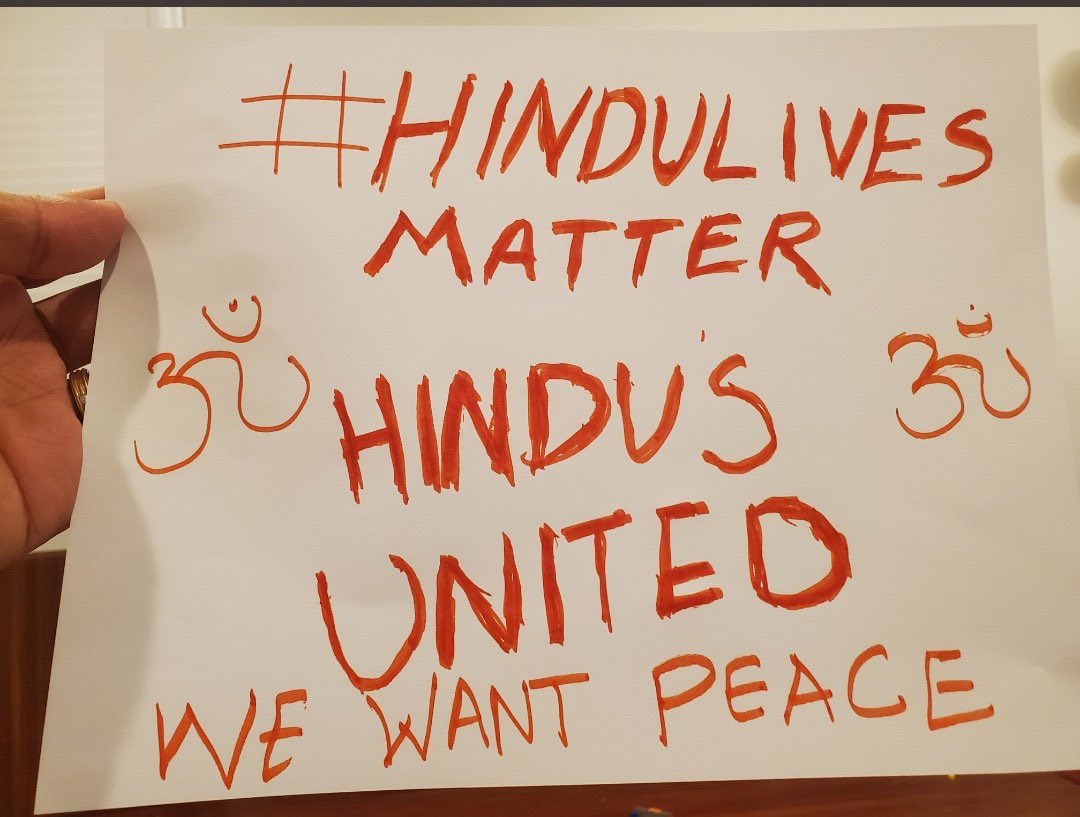 #HINDULIVES
MATTER
ॐ HINDU'S ॐ
UNITED
WE WANT PEACE